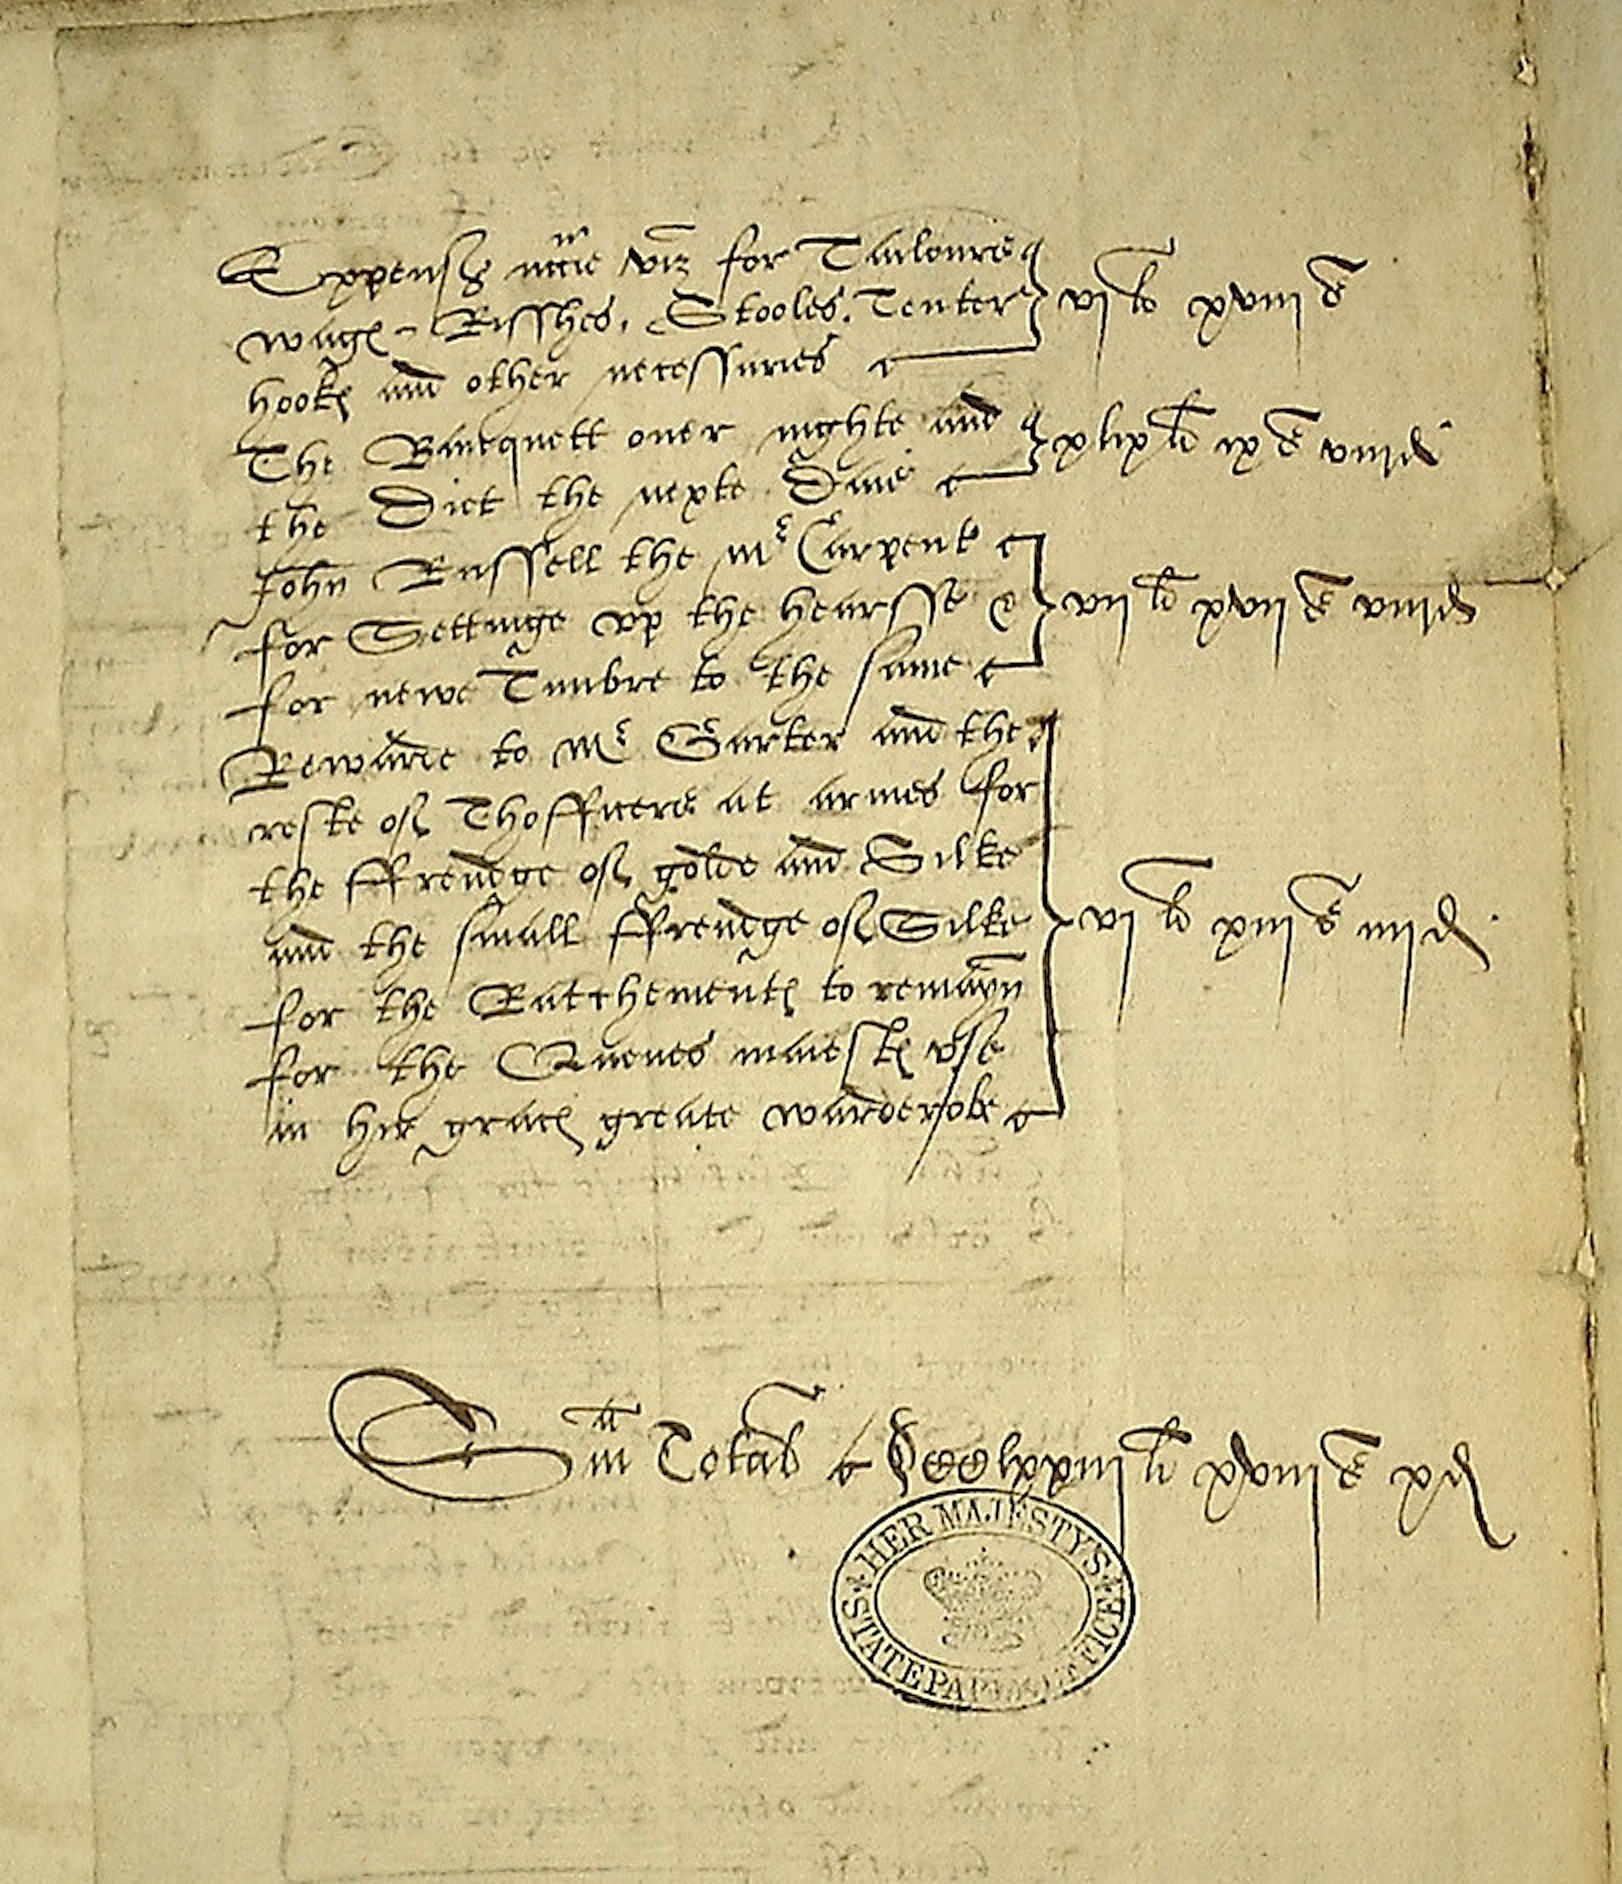 Expensis necrie viz for Tailoures
wages Risshes, Stooles, Tenter
hookes and other necessaries
vi li xviij s
The Bancquett over nighte and
the Diet the nexte Daie
xlix li ix s viij d
John Russell the Mr Carpent
for Settinge vp the hearsse &
for newe Timbre to the same
vij li xvij s viij d
Rewarde to Mr Garter and the
reste of Thofficers at armes for
the ffrendge of golde and Silke
and the small ffrendge of Silke
for the Ratchementes to remayn
for the Quenes maiestes vse
in hir graces greate warderobe
vi li xiij s iiij d
Sm Totalis
lxxiij li xviij s x d
HER MAJESTY'S
STATE PAPER OFFICE